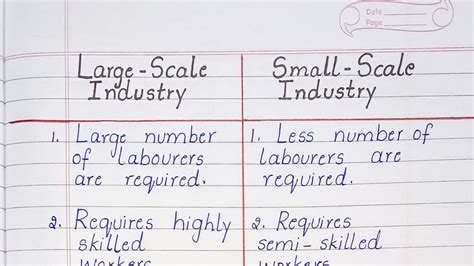 Date
Page
Large-Scale
Industry
Small-Scale
Industry
1. Large number
of labourers
are required.
1. Less number of
labourers are
required.
2. Requires highly
skilled
workers
2. Requires
semi-skilled
workers